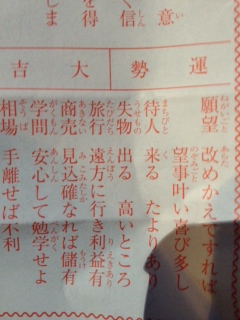 意
く信
を得
しま
運勢
大吉
願望 改めかえてすれば
望事叶い喜び多し
待人 来る たよりあり
失物 出る 高いところ
旅行 遠方に行き利益有
商売 見込確なれば儲有
学問 安心して勉学せよ
相場 手離せば不利